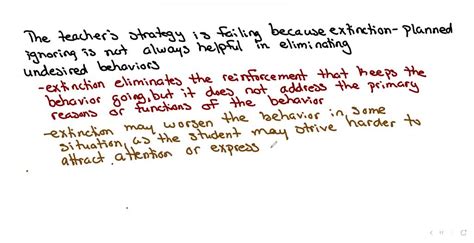 The teacher's strategy is failing because extinction-planned
ignoring is not always helpful in eliminating
undesired behaviors
-extinction eliminates the reinforcement that keeps the
behavior going, but it does not address the primary
reasons or functions of the behavior
-extinction may worsen the behavior in some
situation, as the student may strive harder to
attract attention or express